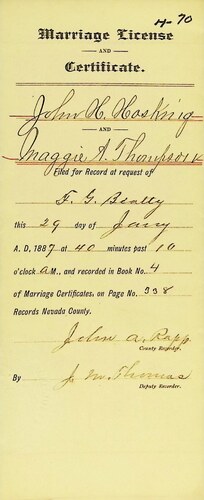 4-70
Marriage License
AND
Certificate.
John H. Hosking
AND
Maggie A. Thompson
Filed for Record at request of
F. G. Beatty
this 29 day of Jany
A. D. 1887 at 40 minutes past 10
o'clock a M., and recorded in Book No. 4
of Marriage Certificates, on Page No. 338
Records Nevada County.
John A. Rapp
County Recorder.
By J. M. Thomas
Deputy Recorder.